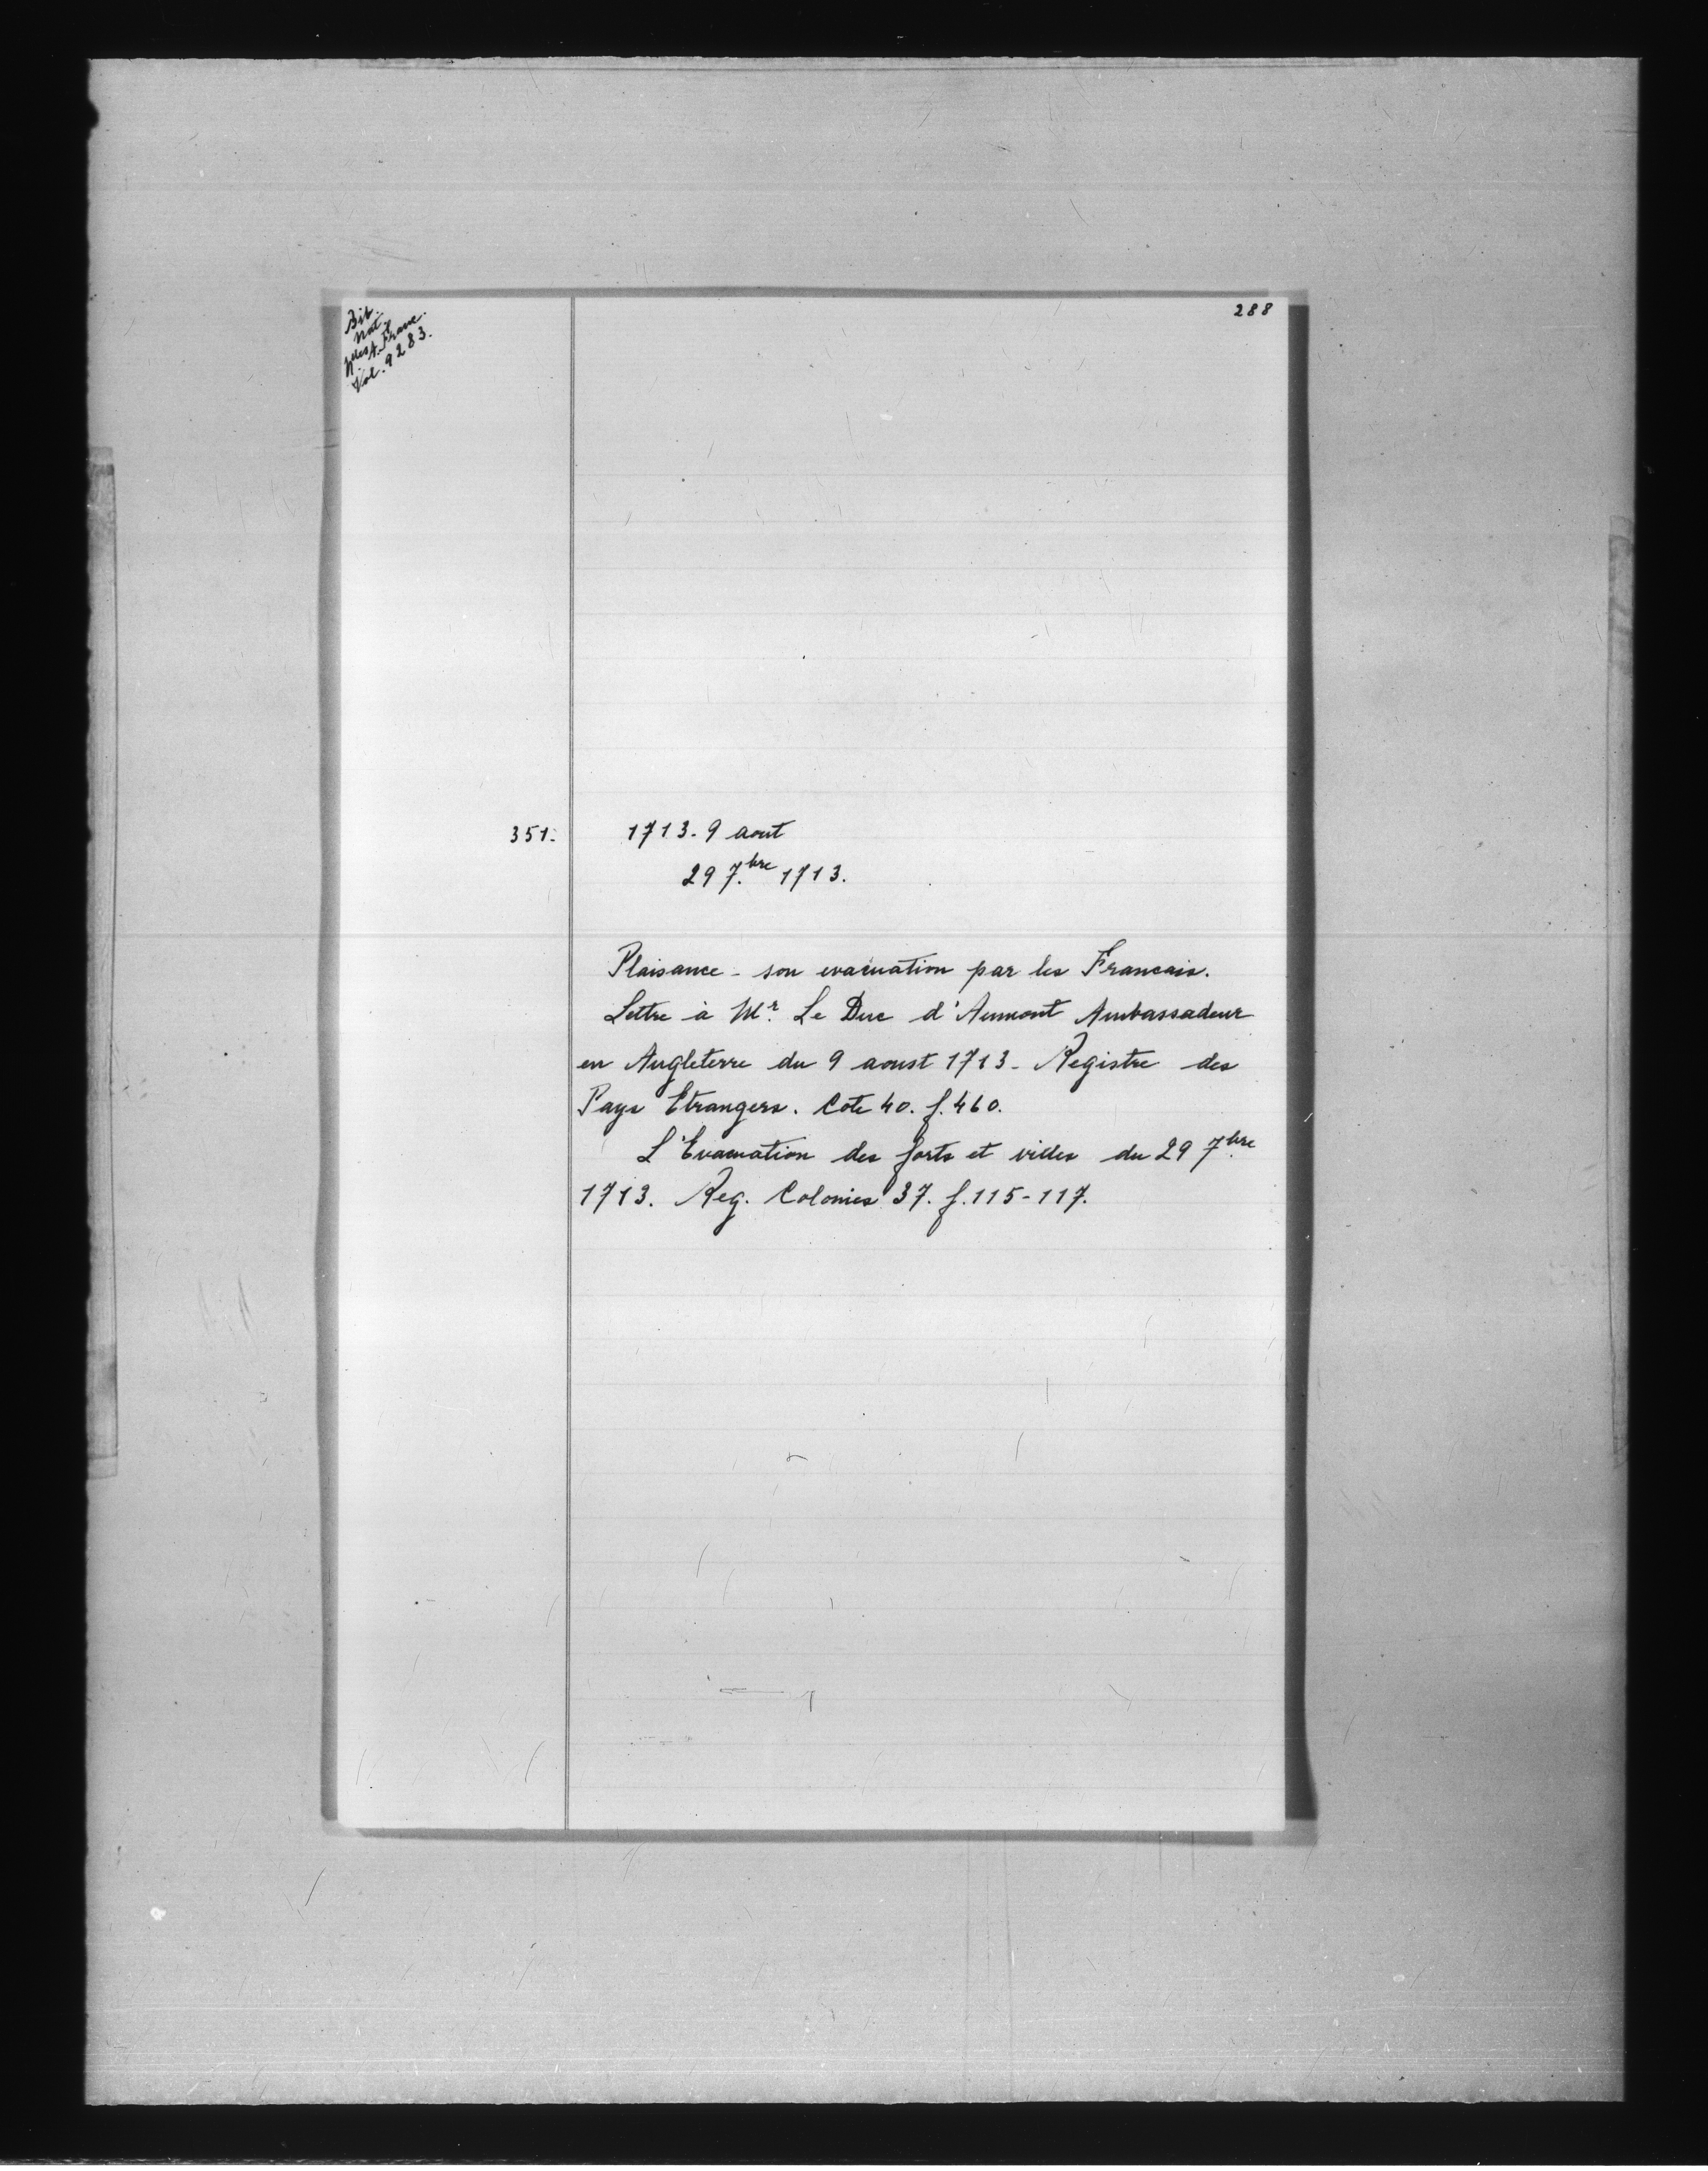 288
Bib.
Nat.
Nlles A. Franc.
Vol. 9283.
351.
1713. 9 aout
29 7.bre 1713.
Plaisance - son evacuation par les Francais.
Lettre à Mr. Le Duc d'Aumont Ambassadeur
en Angleterre du 9 aoust 1713 - Registre des
Pays Etrangers. Cote 40. f. 460.
L'Evacuation des forts et villes du 29 7.bre
1713. Reg. Colonies 37. f. 115-117.